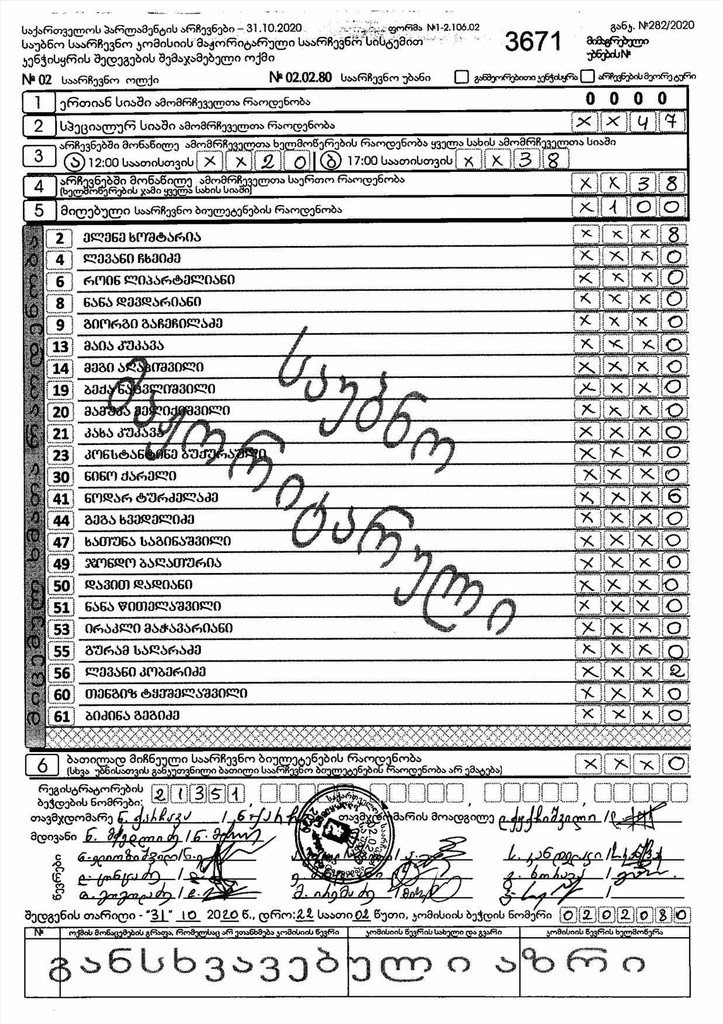 საქართველოს პარლამენტის არჩევნები – 31.10.2020 ფორმა №1-2.106.02 განკ. №282/2020
საუბნო საარჩევნო კომისიის მაჟორიტარული საარჩევნო სისტემით 3671 მიმაგრებული
კენჭისყრის შედეგების შემაჯამებელი ოქმი უბნების №
№ 02 საარჩევნო ოლქი № 02.02.80 საარჩევნო უბანი განმეორებითი კენჭისყრა არჩევნების მეორე ტური
1 ერთიან სიაში ამომრჩეველთა რაოდენობა 0 0 0 0
2 სპეციალურ სიაში ამომრჩეველთა რაოდენობა X X 4 7
არჩევნებში მონაწილე ამომრჩეველთა ხელმოწერების რაოდენობა ყველა სახის ამომრჩეველთა სიაში
3 ა 12:00 საათისთვის X X 2 0 ბ 17:00 საათისთვის X X 3 8
4 არჩევნებში მონაწილე ამომრჩეველთა საერთო რაოდენობა X X 3 8
(ხელმოწერების ჯამი ყველა სახის სიაში)
5 მიღებული საარჩევნო ბიულეტენების რაოდენობა X 1 0 0
2 ელენე ხოშტარია X X X 8
4 ლევანი ჩხეიძე X X X 0
6 როინ ლიპარტელიანი X X X 0
8 ნანა დევდარიანი X X X 0
9 გიორგი გაჩეჩილაძე X X X 0
13 მაია კუკავა X X X 0
14 მეგი X X X 0
19 ბექა X X X 0
20 მამუკა X X X 0
21 კახა კუკავა X X X 0
23 კონსტანტინე X X X 0
30 ნინო ქარელი X X X 0
41 ნოდარ ტურძელაძე X X X 6
44 გეგა ხვედელიძე X X X 0
47 ხათუნა საგინაშვილი X X X 0
49 ჯონდო ბაღათურია X X X 0
50 დავით დადიანი X X X 0
51 ნანა წითელაშვილი X X X 0
53 ირაკლი მაჭავარიანი X X X 0
55 გურამ საღარაძე X X X 0
56 ლევანი კობერიძე X X X 2
60 თენგიზ ტყეშელაშვილი X X X 0
61 ბიძინა გეგიძე X X X 0
საუბნო
მაჟორიტარული
6 ბათილად მიჩნეული საარჩევნო ბიულეტენების რაოდენობა X X X 0
(სხვა უბნისათვის განკუთვნილი ბათილი საარჩევნო ბიულეტენების რაოდენობა არ ემატება)
რეგისტრატორების 2 1 3 5 1
ბეჭდების ნომრები:
თავმჯდომარე თავმჯდომარის მოადგილე
მდივანი
წევრები
შედგენის თარიღი - "31" 10 2020 წ, დრო: 22 საათი 02 წუთი, კომისიის ბეჭდის ნომერი 0 2 0 2 0 8 0
№ ოქმის მონაცემების გრაფა, რომელსაც არ ეთანხმება კომისიის წევრი კომისიის წევრის სახელი და გვარი კომისიის წევრის ხელმოწერა
განსხვავებული აზრი